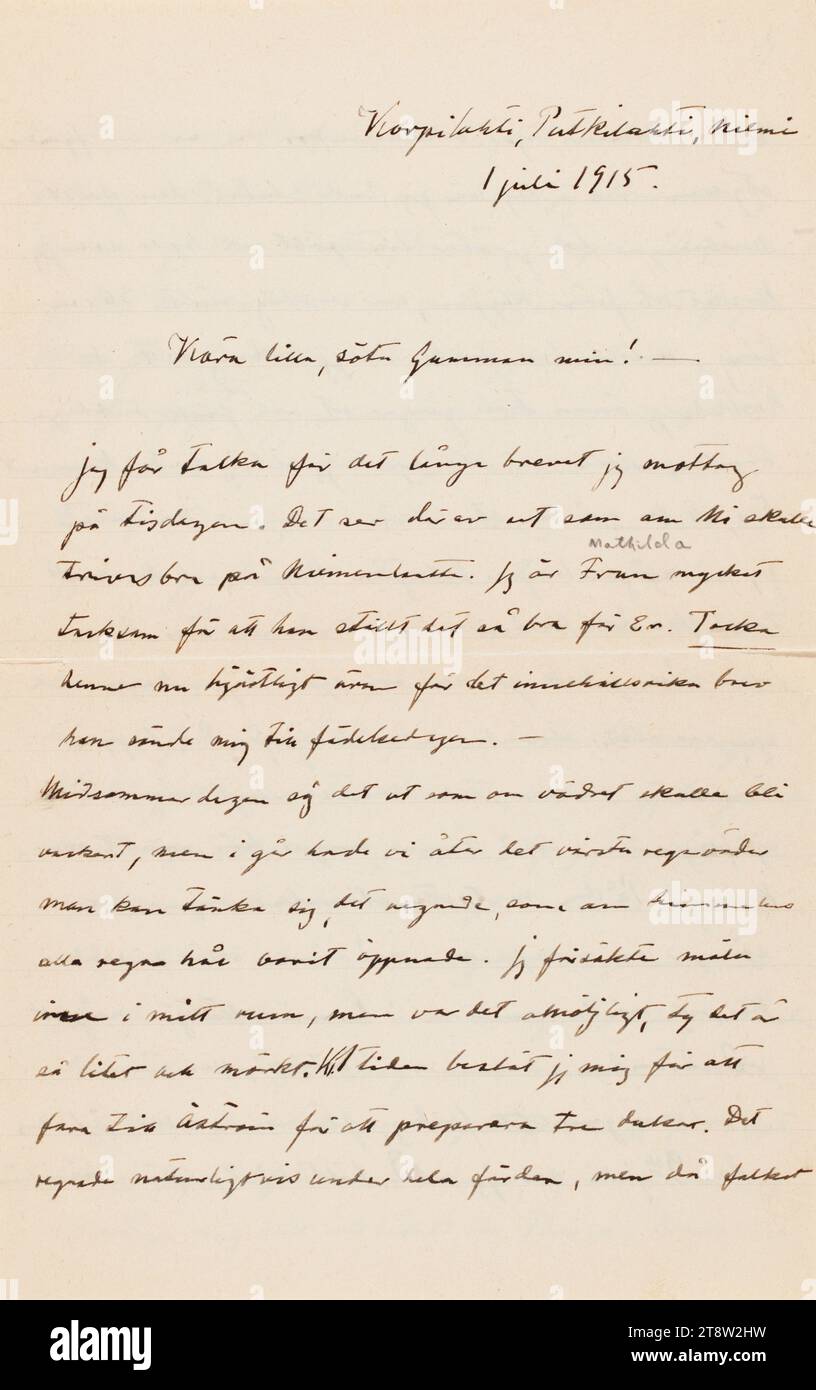 Korpilahti, Putkilahti, Niemi
1 juli 1915.
Kära lilla, söta Gumman min! —
jag får tacka för det långa brevet jag mottog
på tisdagen. Det ser därav ut som om Ni skulle
Mathilda
trivas bra på Niemenlautta. Jag är Fru mycket
tacksam för att hon ställt det så bra för Er. Tacka
henne nu hjärtligt även för det innehållsrika brev
hon sände mig till födelsedagen. —
Midsommardagen såg det ut som om vädret skulle bli
vackert, men i går hade vi åter det värsta regnväder
man kan tänka sig, det regnade, som om himmelens
alla regn hål varit öppnade. Jag försökte måla
inne i mitt rum, men var det omöjligt, ty det är
så litet och mörkt. Kl 1 tiden beslöt jag mig för att
fara till Åström för att preparera tre dukar. Det
regnade naturligtvis under hela färden, men då folket
alamy
a
alamy
Image ID: 2T8W2HW
www.alamy.com